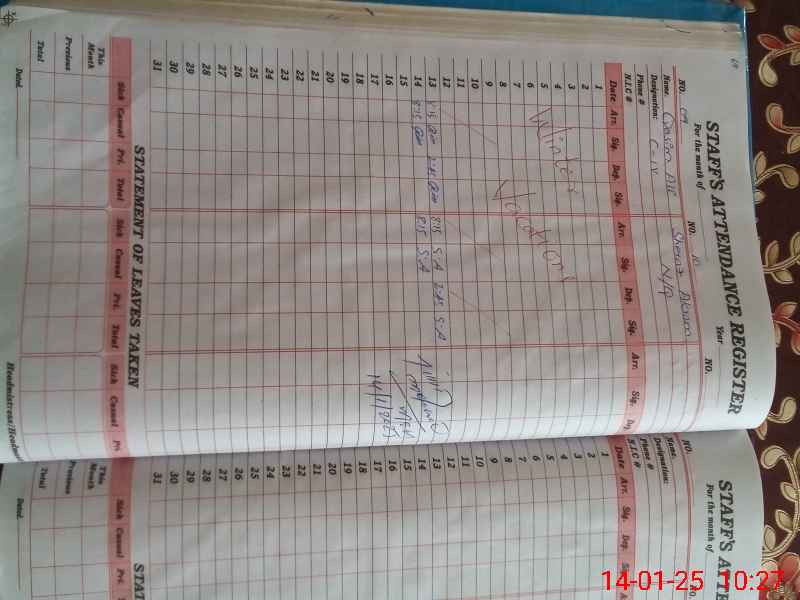 69
STAFF'S ATTENDANCE REGISTER
For the month of Year
NO. 09 NO. 10 NO.
Name. Qasim Ali Sheraz Akram
Designation: C-IV N/Q
Phone #
N.I.C #
Date Arr. Sig. Dep. Sig. Arr. Sig. Dep. Sig. Arr. Sig. Dep
1
2
3
4
5
6
7
8
9
10
11
12
Winter Vacations
13 8:15 2:45 8:15 S.A 2:45 S.A
14 8:15 8:15 S.A
15
16
17
18
19
20
21
22
23
24
25
26
27
28
29
30
31
14/1/2025
STATEMENT OF LEAVES TAKEN
Sick Casual Pri. Total Sick Casual Pri. Total Sick Casual Pri
This Month
Previous
Total
Dated. Headmistress/Headm
STAFF'S ATTE
For the month of
NO. NO.
Name.
Designation:
Phone #
N.I.C #
Date Arr. Sig. Dep. Sig. A
1
2
3
4
5
6
7
8
9
10
11
12
13
14
15
16
17
18
19
20
21
22
23
24
25
26
27
28
29
30
31
STAT
Sick Casual Pri. T
This Month
Previous
Total
Dated.
14-01-25 10:27